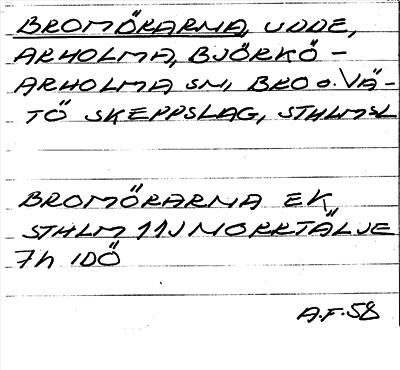 BROMÖRARNA, UDDE,
ARHOLMA, BJÖRKÖ-
ARHOLMA SN, BRO O. VÄ-
TÖ SKEPPSLAG, STHLMSL
BROMÖRARNA EK,
STHLM 11J NORRTÄLJE
7h IDÖ
A.F. 58